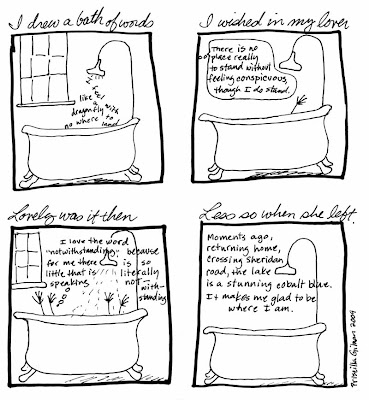 I drew a bath of words
I feel
like
a
dragonfly with
no where to
land
I wished in my lover
There is no
place really
to stand without
feeling conspicuous
though I do stand.
Lovely was it then
I love the word
"notwithstanding" because
for me there is so
little that is literally
speaking not
with-
standing
Less so when she left.
Moments ago,
returning home,
crossing Sheridan
road, the lake
is a stunning cobalt blue.
It makes me glad to be
where I am.
Priscilla Gilman 2009